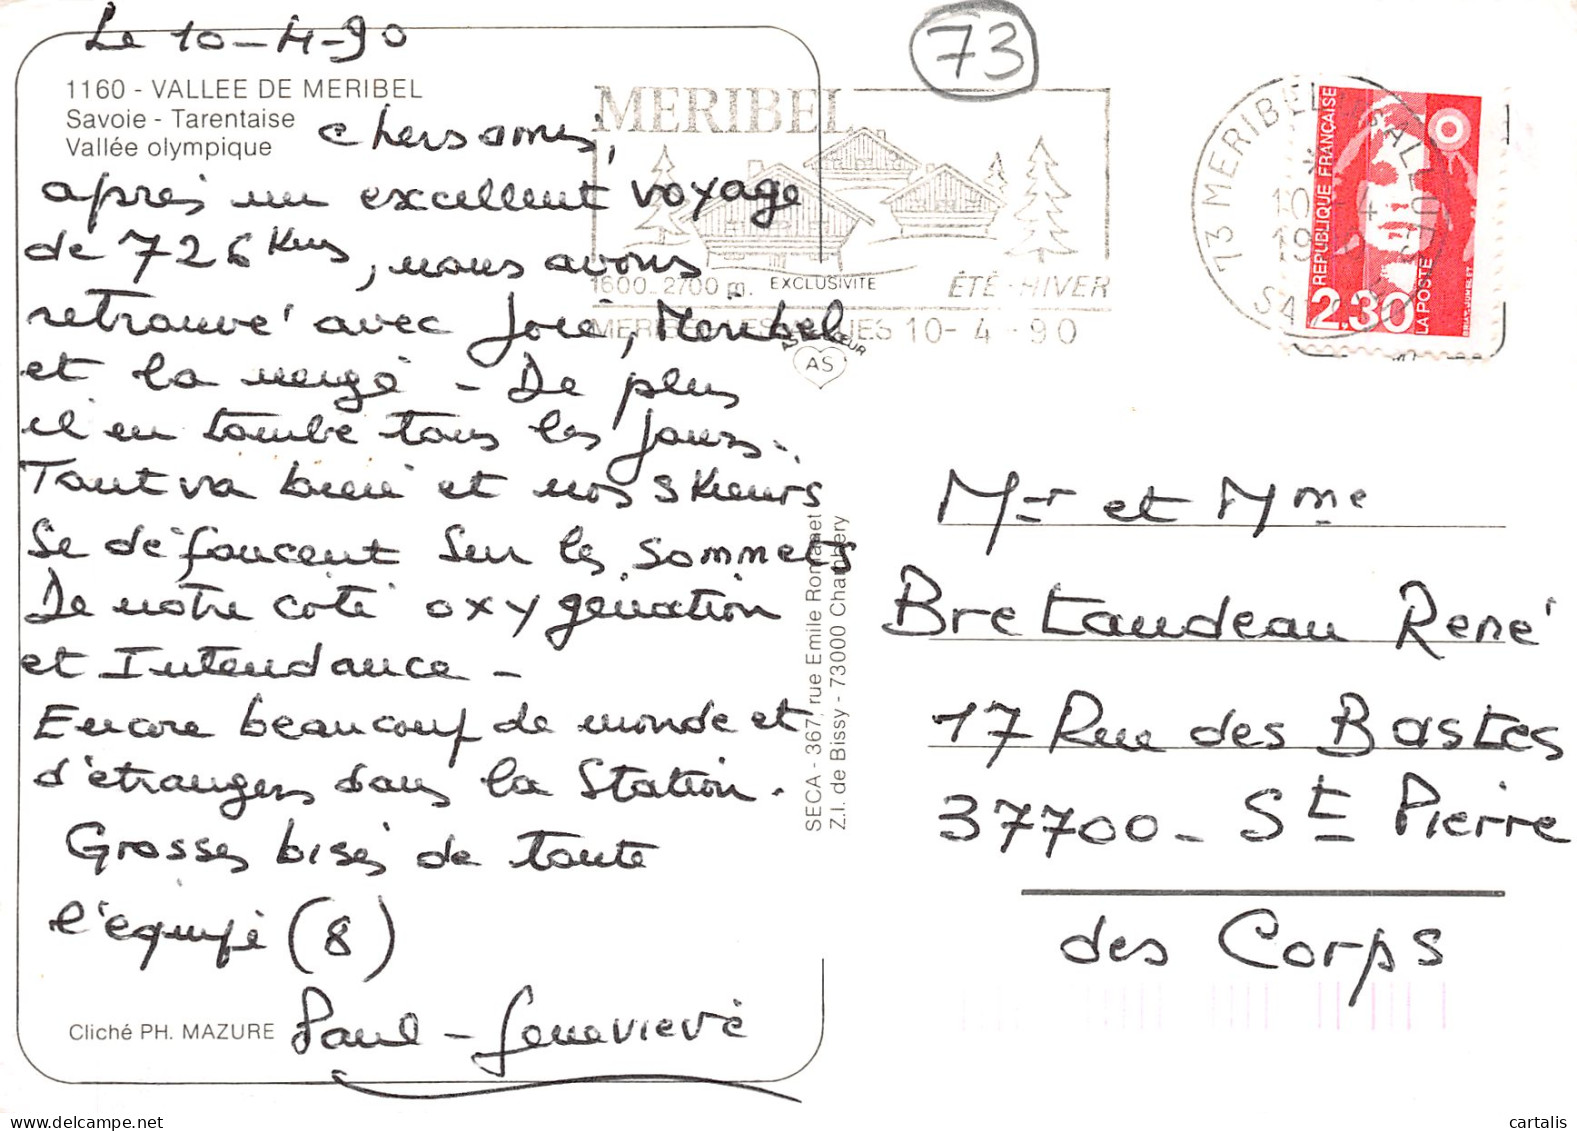 Le 10-4-90
73
1160 - VALLEE DE MERIBEL
Savoie - Tarentaise
Vallée olympique
chers amis,
après un excellent voyage
de 726 Kms, nous avons
retrouvé avec joie, Meribel
et la neige - De plus
il en tombe tous les jours.
Tout va bien et nos skieurs
se défoncent sur les sommets
De notre coté oxygénation
et Intendance -
Encore beaucoup de monde et
d'étrangers dans la Station.
Grosses bises de toute
l'équipe (8)
Paul - Genevieve
Cliché PH. MAZURE
MERIBEL
1600-2700 m. EXCLUSIVITE ÉTÉ-HIVER
10-4-90
AS
SECA - 367, rue Emile Romanet
Z.I. de Bissy - 73000 Chambéry
73 MERIBEL
REPUBLIQUE FRANÇAISE
2.30
LA POSTE
Mr et Mme
Bretaudeau René
17 Rue des Bastes
37700 - St Pierre
des Corps
delcampe.net
cartalis